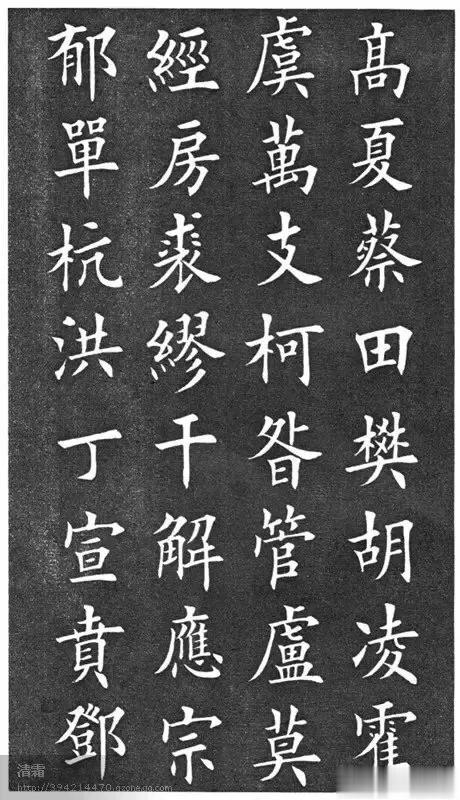 髙夏蔡田樊胡凌霍
虞萬支柯昝管盧莫
經房裘繆干解應宗
郁單杭洪丁宣賁鄧
清霜
http://394214470.qzone.qq.com